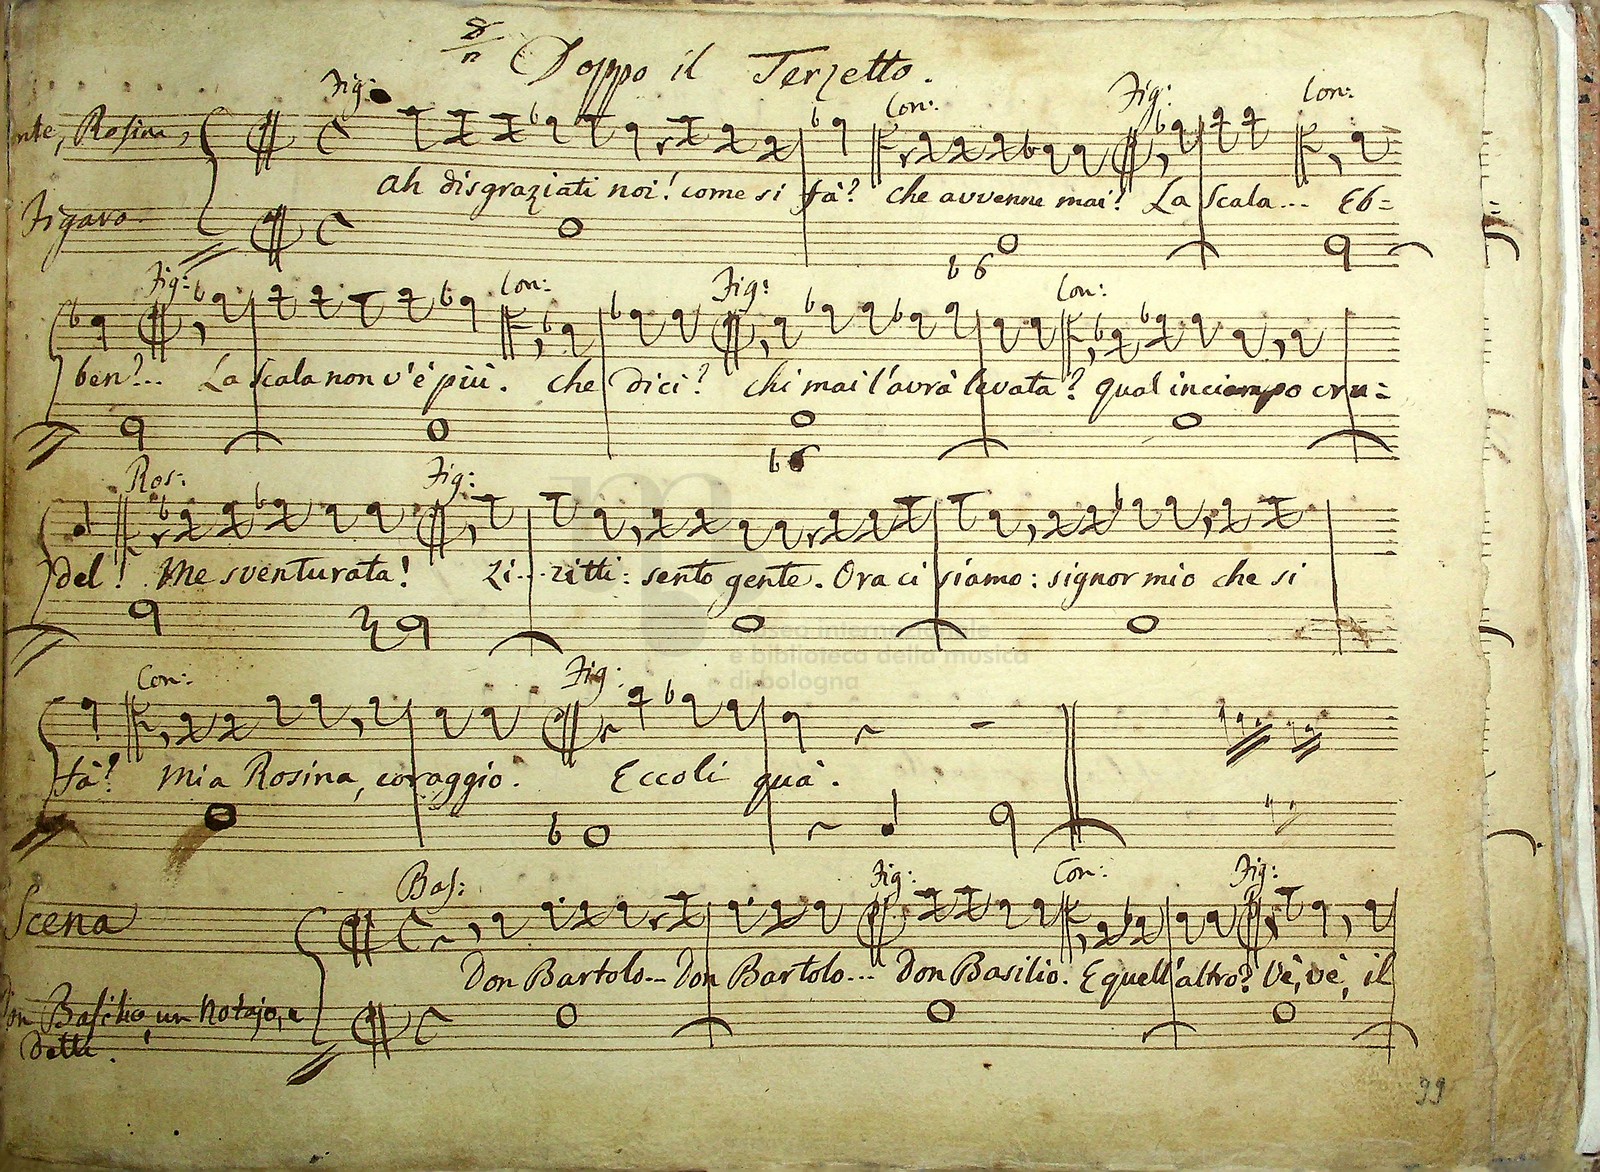 Doppo il Terzetto.
Fig: Con: Fig: Con:
nte, Rosina,
Ah disgraziati noi! come si fà? che avvenne mai! La scala... Eb=
Figaro.
b 6
Fig: Con: Fig: Con:
ben?... La scala non v'é più. che dici? chi mai l'avrà levata? qual inciampo cru=
b 6
Ros: Fig:
del! Me sventurata! Zi...zitti: sento gente. Ora ci siamo: signor mio che si
museo internazionale
e biblioteca della musica
di bologna
Con: Fig:
fà? Mia Rosina, coraggio. Eccoli quà.
Bas: Fig: Con: Fig:
Scena
Don Bartolo... Don Bartolo... Don Basilio. E quell'altro? Vè, vè, il
Don Basilio, un Notajo, e
detti.
99